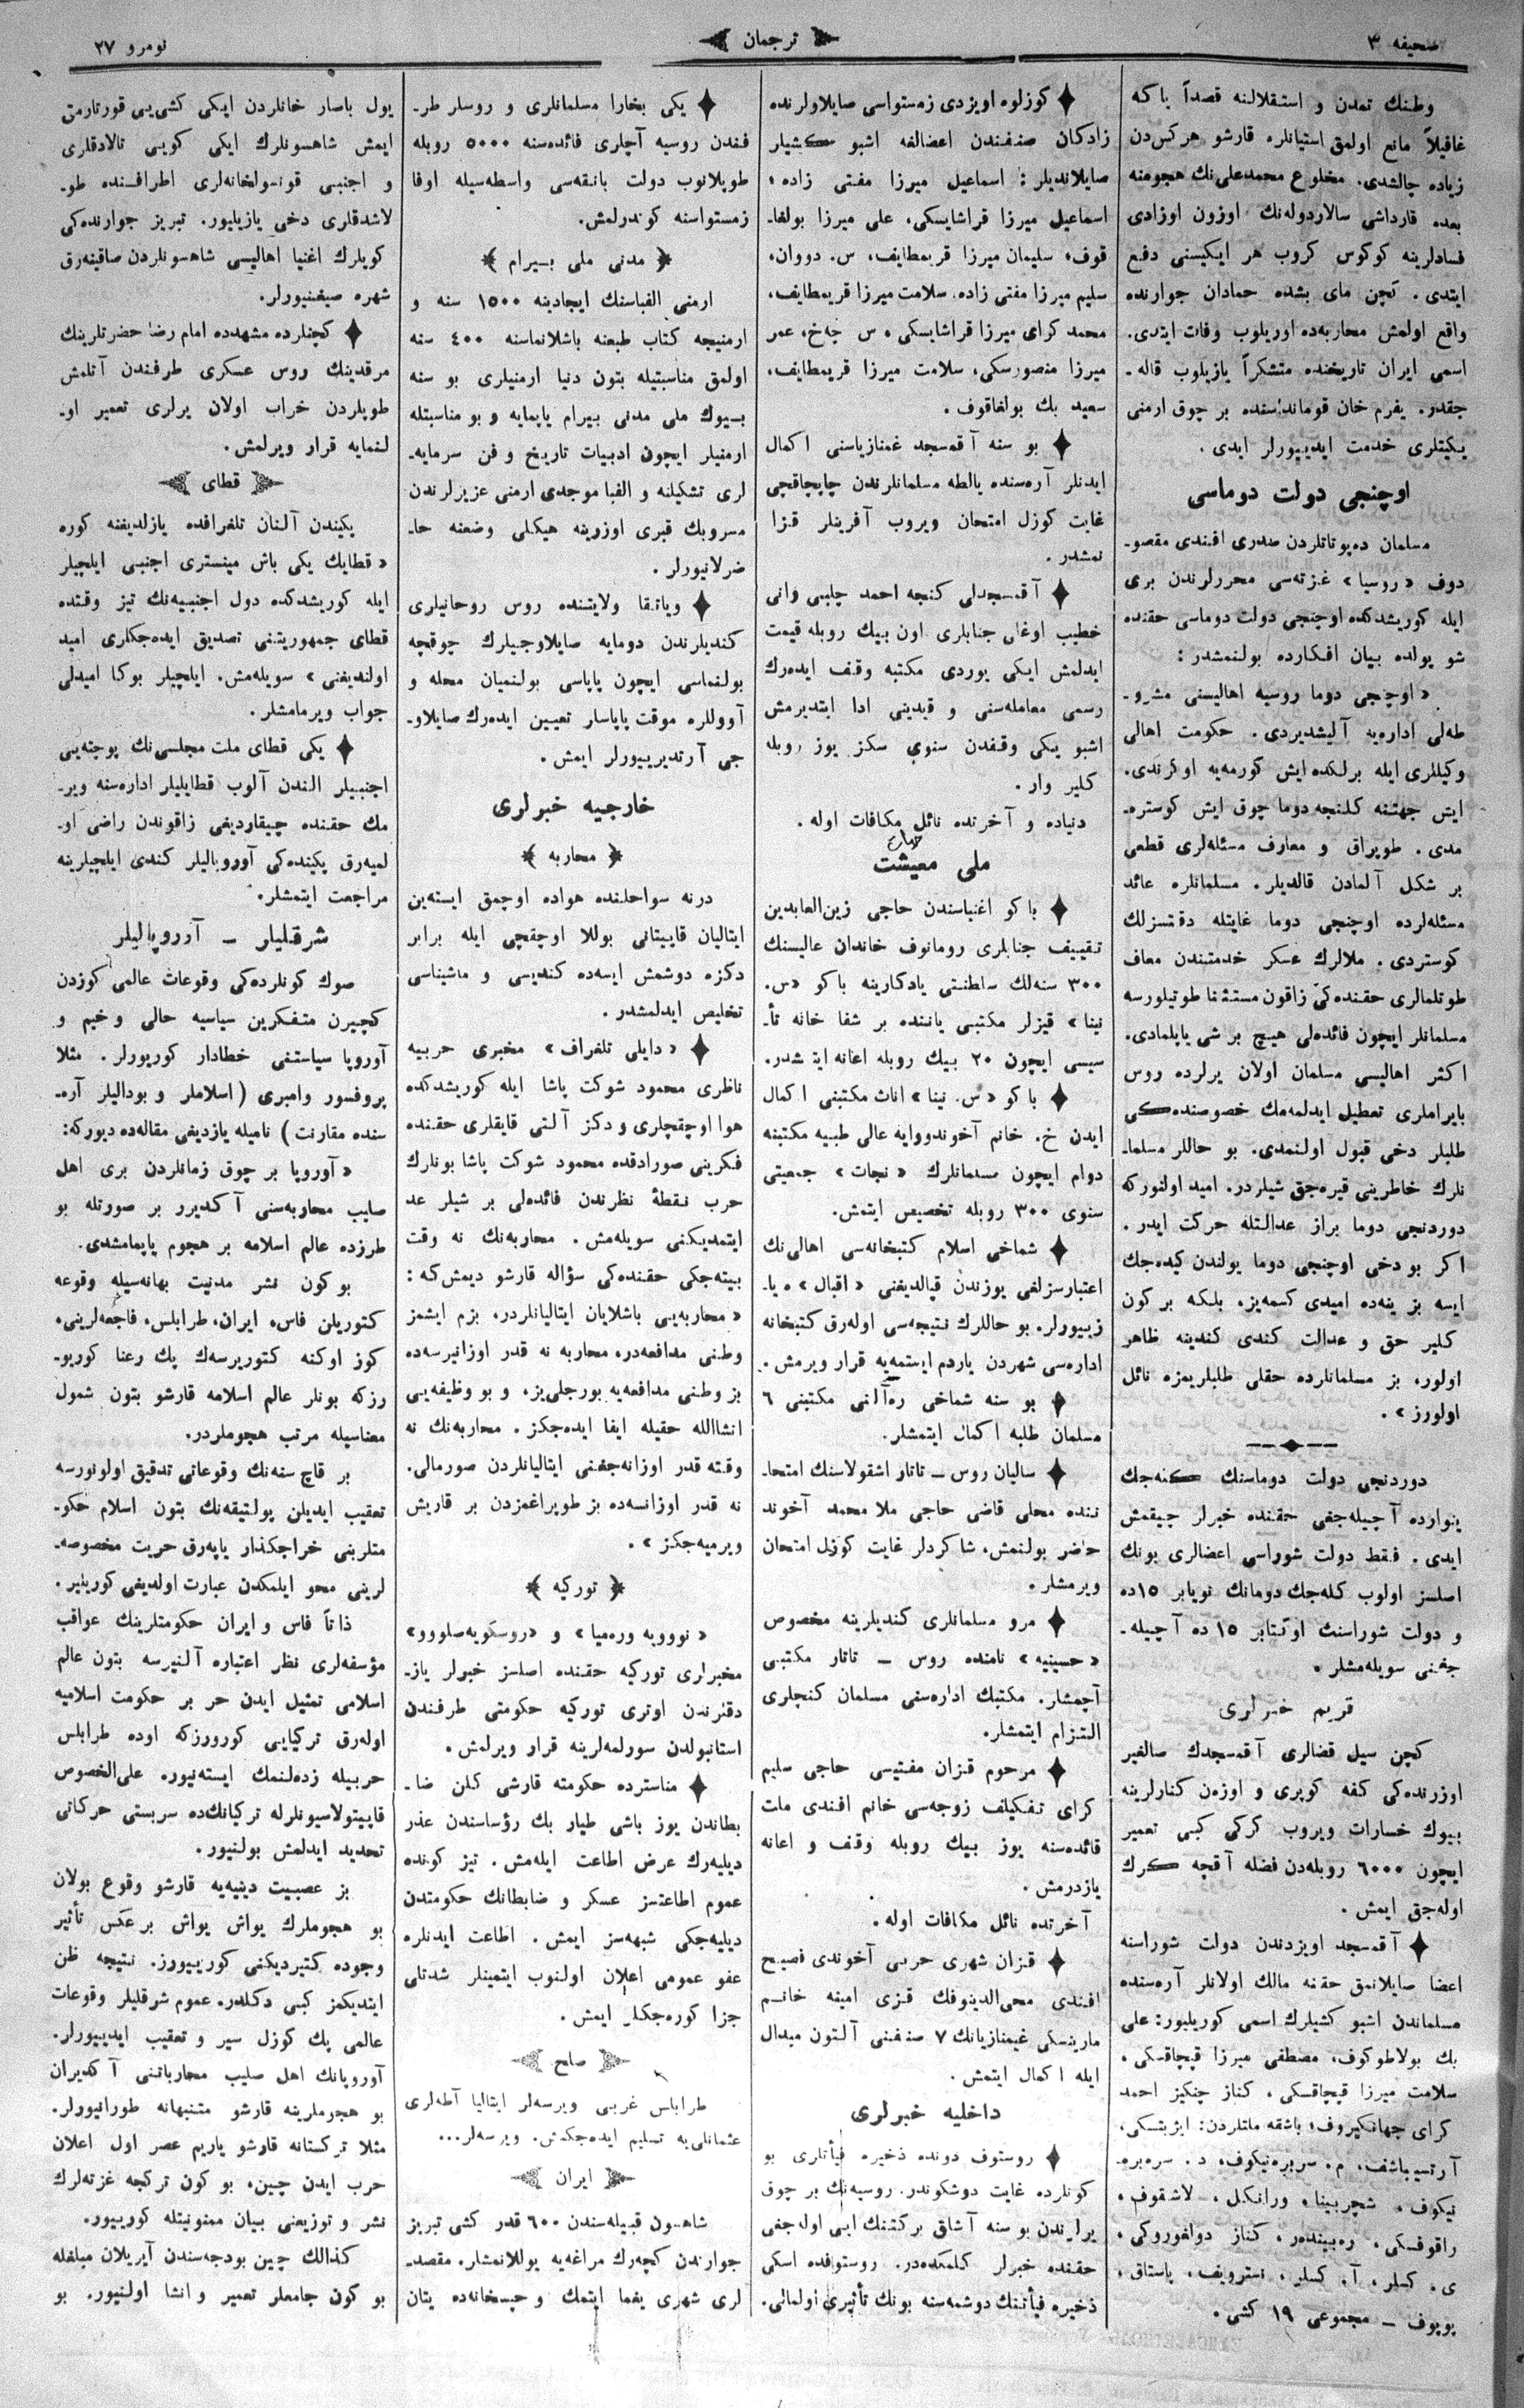 صحیفه ۳
ترجمان
نومرو ۲۷
وطنك تمدن و استقلالنه قصداً یا كه
غافیلاً مانع اولمق استیانلره قارشو هركس‌دن
زیاده چالشدی. مخلوع محمدعلی‌نك هجومنه
بعده قارداشی سالارد‌وله‌نك اوزون اوزادی
فسادلرینه كوكوس كروب هر ایكیسنی دفع
ایتدی. كچن مای بشده حمادان جوارنده
واقع اولمش محاربه‌ده اوریلوب وفات ایتدی.
اسمی ایران تاریخنده متشكراً یازیلوب قاله‌ـ
جقدر. یفرم خان قوماندا‌سنده بر چوق ارمنی
یكیتلری خدمت ایدییورلر ایدی.
اوچنجی دولت دوماسی
مسلمان ده‌پوتاتلردن صدری افندی مقصو‌ـ
دوف «روسیا» غزته‌سی محررلرندن بری
ایله كوریشدكده اوچنجی دولت دوماسی حقنده
شو یولده بیان افكارده بولنمشدر:
«اوچنجی دوما روسیه اهالیسنی مشروـ
طه‌لی اداره‌یه آلیشدیردی. حكومت اهالی
وكیللری ایله برلكده ایش كورمه‌یه اوكرندی.
ایش جهتنه كلنجه دوما چوق ایش كوستره‌ـ
مدی. طوپراق و معارف مسئله‌لری قطعی
بر شكل آلمادن قالدیلر. مسلمانلره عائد
مسئله‌لرده اوچنجی دوما غایتله دقتسزلك
كوستردی. ملالرك عسكر خدمتندن معاف
طوتلمالری حقنده‌كی زاقون مستثنا طوتیلورسه
مسلمانلر ایچون فائده‌لی هیچ بر شی یاپلمادی.
اكثر اهالیسی مسلمان اولان یرلرده روس
بایراملری تعطیل ایدلمه‌مك خصوصنده‌كی
طلبلر دخی قبول اولنمدی. بو حاللر مسلماـ
نلرك خاطرینی قیره‌جق شیلردر. امید اولنوركه
دوردنجی دوما براز عدالتله حركت ایدر.
اكر بو دخی اوچنجی دوما یولندن كیده‌جك
ایسه بز ینه‌ده امیدی كسمه‌یز، بلكه بر كون
كلیر حق و عدالت كندی كندینه ظاهر
اولور، بز مسلمانلرده حقلی طلبلریمزه نائل
اولورز».
دوردنجی دولت دوماسنك كنه‌جك
ینوارده آچیله‌جغی حقنده خبرلر چیقمش
ایدی. فقط دولت شوراسی اعضالری بونك
اصلسز اولوب كله‌جك دومانك نویابر ۱۵ده
و دولت شوراسنك اوكتابر ۱۵ ده آچیله‌ـ
جغنی سویله‌مشلر.
قریم خبرلری
كچن سیل قضالری آقمسجدك صالغیر
اوزرنده‌كی كفه كوپری و اوزه‌ن كنارلرینه
بیوك خسارات ویروب كركی كبی تعمیر
ایچون ۶۰۰۰ روبله‌دن فضله آقچه كرك
اوله‌جق ایمش.
آقمسجد اویزدندن دولت شوراسنه
اعضا صایلانمق حقنه مالك اولانلر آره‌سنده
مسلماندن اشبو كشیلرك اسمی كوریلیور: علی
بك بولاطوكوف، مصطفی میرزا قیچاقسكی،
سلامت میرزا قیچاقسكی، كناز چنكیز احمد
كرای جهانكیروف؛ باشقه ملتلردن:
آرتسیباشف، م. سربره‌نیكوف، د. سره‌بره‌ـ
نیكوف، شچربینا، ورانكل، لاشقوف،
راقوفسكی، ره‌بیندەر، كناز دولغوروكی،
ی. كسلر، آ. كسلر، نسترویف، پاستاق،
پوپوف ـ مجموعی ۱۹ كشی.
كوزلوه اویزدی زمستواسی صایلاولرنده
زادكان صنفندن اعضالغه اشبو كشیلر
صایلاندیلر: اسماعیل میرزا مفتی زاده؛
اسماعیل میرزا قراشایسكی، علی میرزا بولغاـ
قوف، سلیمان میرزا قریمطایف، س. دووان،
سلیم میرزا مفتی زاده، سلامت میرزا قریمطایف،
محمد كرای میرزا قراشایسكی، س چه‌خ، عمر
میرزا منصورسكی، سلامت میرزا قریمطایف،
سعید بك بولغاقوف.
بو سنه آقمسجد غمنازیاسنی اكمال
ایدنلر آره‌سنده یالطه مسلمانلرندن چاپچاقچی
غایت كوزل امتحان ویروب آفرینلر قزا
نمشدر.
آقمسجدلی كنجه احمد چلبی وانی
خطیب اوغلی جنابلری اون بیك روبله قیمت
ایدلمش ایكی یوردی مكتبه وقف ایده‌رك
رسمی معامله‌سنی و قیدینی ادا ایتدیرمش
اشبو یكی وقفدن سنوی سكز یوز روبله
كلیر وار.
دنیاده و آخرنده نائل مكافات اوله.
ملی معیشت
باكو اغنیاسندن حاجی زین‌العابدین
تقییف جنابلری رومانوف خاندان عالیسنك
۳۰۰ سنه‌لك سلطنتی یادكارینه باكو «س.
نینا» قیزلر مكتبی یاننده بر شفا خانه تأـ
سیسی ایچون ۲۰ بیك روبله اعانه ایتمشدر.
باكو «س. نینا» اناث مكتبنی اكمال
ایدن خ. خانم آخوندووایه عالی طبیه مكتبنه
دوام ایچون مسلمانلرك «نجات» جمعیتی
سنوی ۳۰۰ روبله تخصیص ایتمش.
شماخی اسلام كتبخانه‌سی اهالی‌نك
اعتبارسزلغی یوزندن قپالدیغنی «اقبال»ه یاـ
زییورلر. بو حاللرك نتیجه‌سی اوله‌رق كتبخانه
اداره‌سی شهردن یاردم ایستمه‌یه قرار ویرمش.
بو سنه شماخی ره‌آلنی مكتبنی ۶
مسلمان طلبه اكمال ایتمشلر.
سالیان روس ـ تاتار اشقولاسنك امتحاـ
ننده محلی قاضی حاجی ملا محمد آخوند
حاضر بولنمش، شاكردلر غایت كوزل امتحان
ویرمشلر.
مرو مسلمانلری كندیلرینه مخصوص
«حسینیه» نامنده روس ـ تاتار مكتبی
آچمشلر. مكتبك اداره‌سنی مسلمان كنجلری
التزام ایتمشلر.
مرحوم قزان مفتیسی حاجی سلیم
كرای تفكیلف زوجه‌سی خانم افندی ملت
فائده‌سنه یوز بیك روبله وقف و اعانه
یازدرمش.
آخرتده نائل مكافات اوله.
قزان شهری حربی آخوندی فصیح
افندی محی‌الدینوفك قزی امینه خانم
مارینسكی غیمنازیانك ۷ صنفنی آلتون میدال
ایله اكمال ایتمش.
داخلیه خبرلری
روستوف دونده ذخیره فیأتلری بو
كونلرده غایت دوشكوندر. روسیه‌نك بر چوق
یرلرندن بو سنه آشاق بركتنك ایی اوله‌جغی
حقنده خبرلر كلمكده‌در. روستوفده اسكی
ذخیره فیأتنك دوشمه‌سنه بونك تأثیری اولمالی.
یكی بخارا مسلمانلری و روسلر طرـ
فندن روسیه آچلری فائده‌سنه ۵۰۰۰ روبله
طوپلانوب دولت بانقه‌سی واسطه‌سیله اوفا
زمستواسنه كوندرلمش.
مدنی ملی بیرام
ارمنی الفباسنك ایجادینه ۱۵۰۰ سنه و
ارمنیجه كتاب طبعنه باشلانماسنه ۴۰۰ سنه
اولمق مناسبتیله بتون دنیا ارمنیلری بو سنه
بیوك ملی مدنی بیرام یاپمایه و بو مناسبتله
ارمنیلر ایچون ادبیات تاریخ و فن سرمایه‌ـ
لری تشكیلنه و الفبا موجدی ارمنی عزیزلرندن
مسروبك قبری اوزرینه هیكلی وضعنه حاـ
ضرلانیورلر.
ویاتقا ولایتنده روس روحانیلری
كندیلرندن دومایه صایلاوجیلرك چوقچه
بولنماسی ایچون پاپاسی بولنمیان محله و
آووللره موقت پاپاسلر تعیین ایده‌رك صایلاوـ
جی آرتدیرییورلر ایمش.
خارجیه خبرلری
محاربه
درنه سواحلنده هواده اوچمق ایسته‌ین
ایتالیان قاپیتانی بوللا اوچقچی ایله برابر
دكزه دوشمش ایسه‌ده كندیسی و ماشیناسی
تخلیص ایدلمشدر.
«دایلی تلغراف» مخبری حربیه
ناظری محمود شوكت پاشا ایله كوریشدكده
هوا اوچقچلری و دكز آلتی قایقلری حقنده
فكرینی صورادقده محمود شوكت پاشا بونلرك
حرب نقطهٔ نظرندن فائده‌لی بر شیلر عد
ایتمدیكنی سویله‌مش. محاربه‌نك نه وقت
بیته‌جكی حقنده‌كی سؤاله قارشو دیمش‌كه:
«محاربه‌یی باشلایان ایتالیانلردر، بزم ایشمز
وطنی مدافعه‌در، محاربه نه قدر اوزانیرسه‌ده
بز وطنی مدافعه‌یه بورجلی‌یز، و بو وظیفه‌یی
انشاالله حقیله ایفا ایده‌جكز. محاربه‌نك نه
وقته قدر اوزانه‌جغنی ایتالیانلردن صورمالی.
نه قدر اوزانسه‌ده بز طوپراغمزدن بر قاریش
ویرمیه‌جكز».
توركیه
«نووویه وره‌میا» و «روسكویه‌صلووو»
مخبرلری توركیه حقنده اصلسز خبرلر یازـ
دقلرندن اوتری توركیه حكومتی طرفندن
استانبولدن سورلمه‌لرینه قرار ویرلمش.
مناسترده حكومته قارشی كلن ضاـ
بطاندن یوز باشی طیار بك رؤساسندن عذر
دیلیه‌رك عرض اطاعت ایله‌مش. تیز كونده
عموم اطاعتسز عسكر و ضابطانك حكومتدن
دیلیه‌جكی شبهه‌سز ایمش. اطاعت ایدنلره
عفو عمومی اعلان اولنوب ایتمینلر شدتلی
جزا كوره‌جكلر ایمش.
صلح
طرابلس غربی ویرسه‌لر ایتالیا آطه‌لری
عثمانلی‌یه تسلیم ایده‌جكمش. ویرسه‌لر...
ایران
شاهسون قبیله‌سندن ۶۰۰ قدر كشی تبریز
جوارندن كچه‌رك مراغه‌یه یوللانمشلر. مقصدـ
لری شهری یغما ایتمك و حبسخانه‌ده یتان
یول باصار خانلردن ایكی كشی‌یی قورتارمق
ایمش شاهسونلرك ایكی كویی تالادقلری
و اجنبی قونسولخانه‌لری اطرافنده طوـ
لاشدقلری دخی یازیلیور. تبریز جوارنده‌كی
كویلرك اغنیا اهالیسی شاهسونلردن صاقینه‌رق
شهره صیغنیورلر.
كچنلرده مشهدده امام رضا حضرتلرینك
مرقدینك روس عسكری طرفندن آتلمش
طوپلردن خراب اولان یرلری تعمیر اوـ
لنمایه قرار ویرلمش.
قطای
پكیندن آلنان تلغرافده یازلدیغنه كوره
«قطایك یكی باش مینستری اجنبی ایلچیلر
ایله كوریشدكده دول اجنبیه‌نك تیز وقتده
قطای جمهوریتنی تصدیق ایده‌جكلری امید
اولندیغنی» سویله‌مش. ایلچیلر بوكا امیدلی
جواب ویرمامشلر.
یكی قطای ملت مجلسی‌نك پوچته‌یی
اجنبیلر الندن آلوب قطایلیلر اداره‌سنه ویرـ
مك حقنده چیقاردیغی زاقوندن راضی اوـ
لمیه‌رق پكینده‌كی آوروپالیلر كندی ایلچیلرینه
مراجعت ایتمشلر.
شرقلیلر ـ آوروپالیلر
صوك كونلرده‌كی وقوعات عالمی كوزدن
كچیرن متفكرین سیاسیه حالی وخیم و
آوروپا سیاستنی خطادار كوریورلر. مثلا
پروفسور وامبری (اسلاملر و بودالیلر آره‌ـ
سنده مقارنت) نامیله یازدیغی مقاله‌ده دیوركه:
«آوروپا بر چوق زمانلردن بری اهل
صلیب محاربه‌سنی آكدیرر بر صورتله بو
طرزده عالم اسلامه بر هجوم یاپمامشدی.
بو كون نشر مدنیت بهانه‌سیله وقوعه
كتوریلن فاس، ایران، طرابلس، فاجعه‌لرینی،
كوز اوكنه كتوریرسه‌ك پك رعنا كوریوـ
رزكه بونلر عالم اسلامه قارشو بتون شمول
معناسیله مرتب هجوملردر.
بر قاچ سنه‌نك وقوعاتی تدقیق اولونورسه
تعقیب ایدیلن پولتیقه‌نك بتون اسلام حكوـ
متلرینی خراجكذار یاپه‌رق حریت مخصوصه‌ـ
لرینی محو ایلمكدن عبارت اولدیغی كورینیر.
ذاتاً فاس و ایران حكومتلرینك عواقب
مؤسفه‌لری نظر اعتباره آلنیرسه بتون عالم
اسلامی تمثیل ایدن حر بر حكومت اسلامیه
اوله‌رق تركیایی كورورزكه اوده طرابلس
حربیله زده‌لنمك ایسته‌نیور. علی‌الخصوص
قاپیتولاسیونلرله تركیانك‌ده سربستی حركاتی
تحدید ایدلمش بولنیور.
بز عصبیت دینیه‌یه قارشو وقوع بولان
بو هجوملرك یواش یواش بر عكس تأثیر
وجوده كتیردیكنی كورییورز. نتیجه ظن
ایتدیكمز كبی دكلدر. عموم شرقلیلر وقوعات
عالمی پك كوزل سیر و تعقیب ایدییورلر.
آوروپانك اهل صلیب محارباتنی آكدیران
بو هجوملرینه قارشو متنبهانه طورانیورلر.
مثلا تركستانه قارشو یاریم عصر اول اعلان
حرب ایدن چین، بو كون تركجه غزته‌لرك
نشر و توزیعنی بیان ممنونیتله كورییور.
كذالك چین بودجه‌سندن آیریلان مبلغله
بو كون جامعلر تعمیر و انشا اولنیور. بو